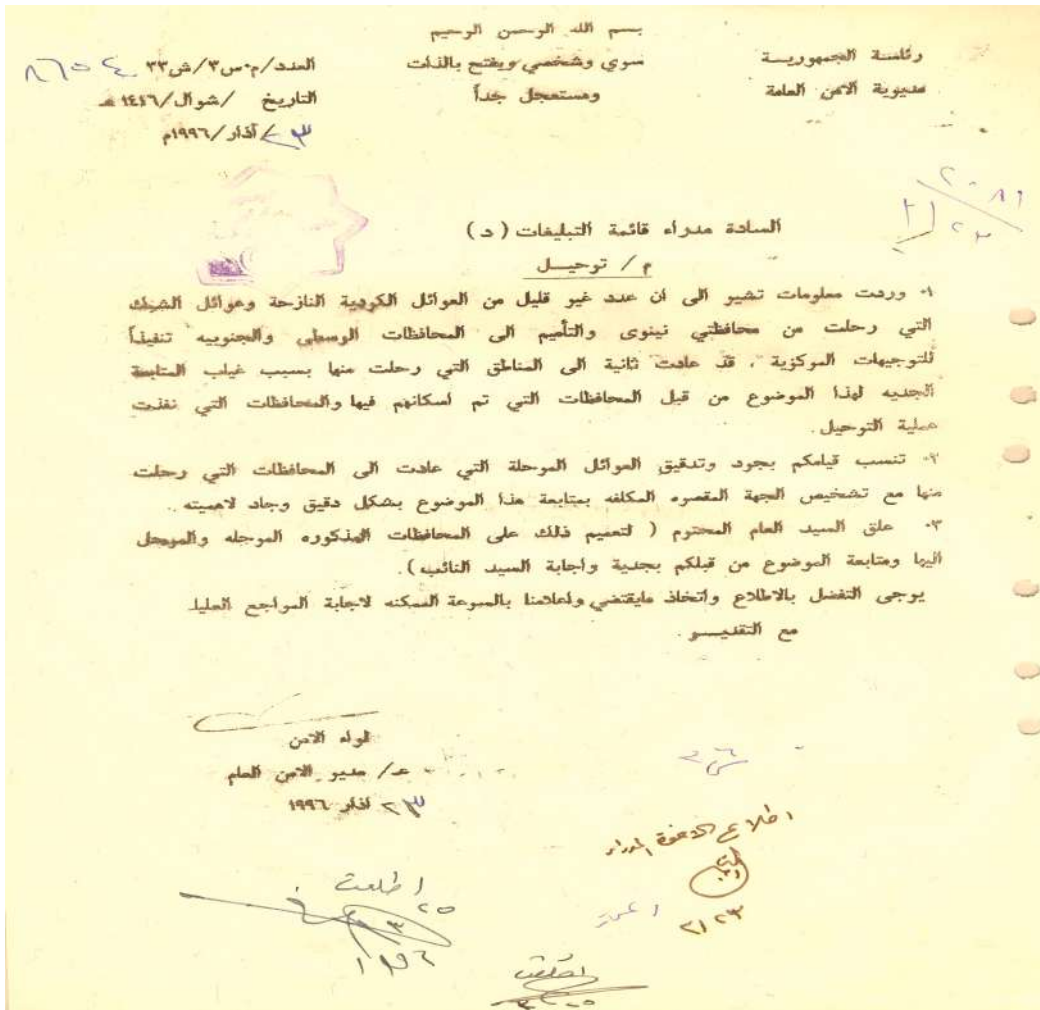 بسم الله الرحمن الرحيم
رئاسة الجمهورية
مديرية الامن العامة
سري وشخصي ويفتح بالذات
ومستعجل جداً
العدد/م٠س٣/ش٣٣ ٨٦٥٤
التاريخ /شوال/١٤١٦ هـ
٢٣/آذار/١٩٩٦م
٢٠٨١
٣/٢٣
السادة مدراء قائمة التبليغات (د)
م/ ترحيل
١٠ وردت معلومات تشير الى ان عدد غير قليل من العوائل الكردية النازحة وعوائل الشبك
التي رحلت من محافظتي نينوى والتأميم الى المحافظات الوسطى والجنوبيه تنفيذاً
للتوجيهات المركزية ، قد عادت ثانية الى المناطق التي رحلت منها بسبب غياب المتابعة
الجديه لهذا الموضوع من قبل المحافظات التي تم اسكانهم فيها والمحافظات التي نفذت
عملية الترحيل .
٢٠ تنسب قيامكم بجرد وتدقيق العوائل المرحلة التي عادت الى المحافظات التي رحلت
منها مع تشخيص الجهة المقصره المكلفه بمتابعة هذا الموضوع بشكل دقيق وجاد لاهميته .
٣٠ علق السيد العام المحترم ( لتعميم ذلك على المحافظات المذكوره المرحله والمرحل
اليها ومتابعة الموضوع من قبلكم بجدية واجابة السيد النائب ).
يرجى التفضل بالاطلاع واتخاذ مايقتضي واعلامنا بالسرعة الممكنه لاجابة المراجع العليا
مع التقديـــر .
لواء الامن
عـ/ مدير الامن العام
٢٣ اذار ١٩٩٦
اطلاع الاخوة المدراء
٣/٢٣
اطلعت
٢٥
٣
١٩٩٦
اطلعت
٣/٢٥